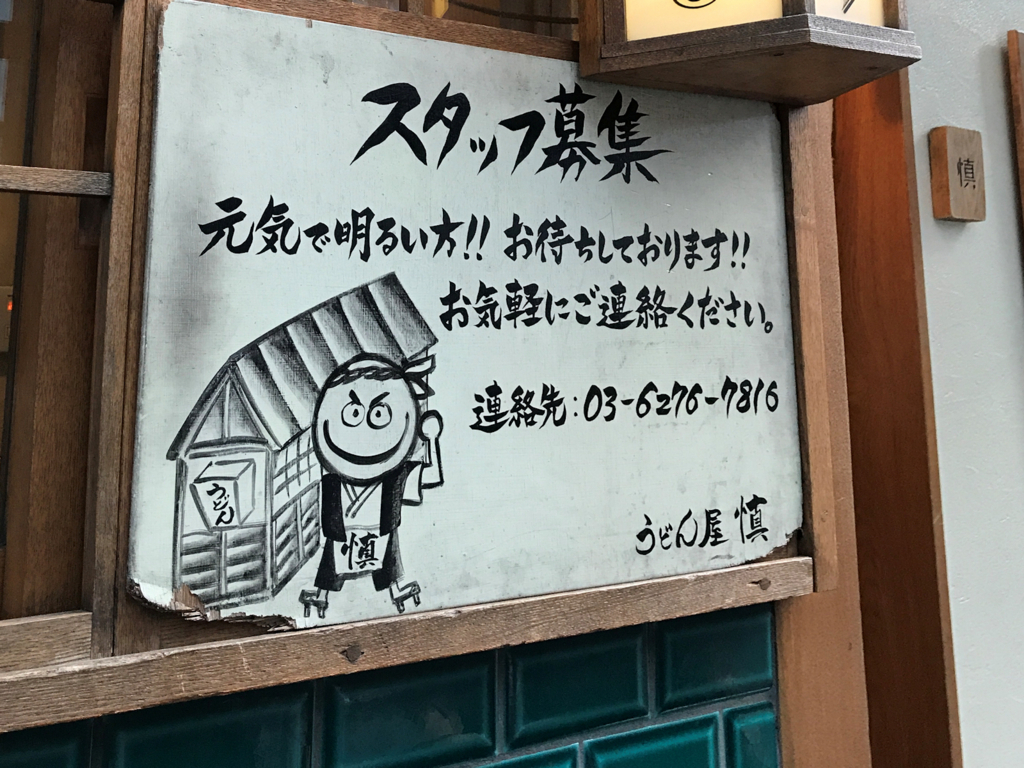 スタッフ募集
元気で明るい方!! お待ちしております!!
お気軽にご連絡ください。
連絡先:03-6276-7816
うどん屋 慎
うどん
慎
慎